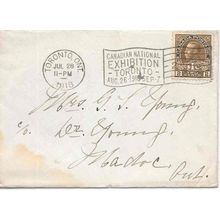 TORONTO, ONT.
JUL 28
11-PM
1916
CANADIAN NATIONAL
EXHIBITION
TORONTO
AUG. 26 1916 SEP. 7
Mrs. G. S. Young,
c/o Dr. Young,
Madoc,
Ont.